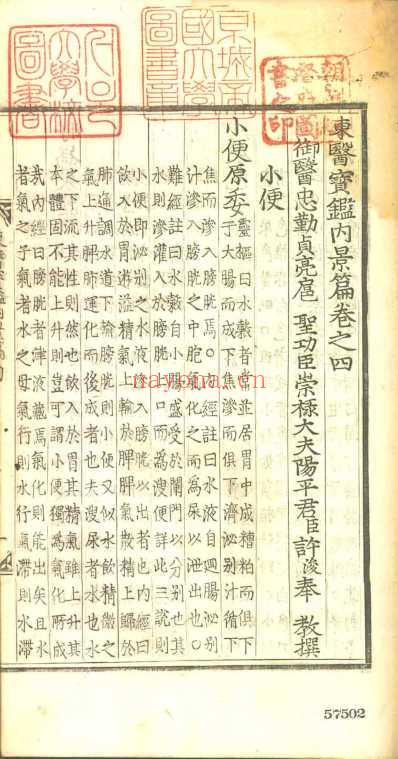 東醫寶鑑內景篇卷之四
御醫忠勤貞亮扈 聖功臣崇祿大夫陽平君臣許浚奉 教撰
小便
小便原委
靈樞曰水穀者常並居胃中成糟粕而俱下
于大腸而成下焦滲而俱下濟泌別汁循下
焦而滲入膀胱焉○內經註曰水液自迴腸泌別
汁滲入膀胱之中胞氣化之而為尿以泄出也○
難經註曰水穀自小腸盛受於闌門以分別也其
水則滲灌入於膀胱上口而為溲便詳此三說則
小便即泌別之水液滲入膀胱以出者也內經曰
飲入於胃遊溢精氣上輸於脾脾氣散精上歸於
肺通調水道下輸膀胱則小便又似水飲精微之
氣上升脾肺運化而後成者也夫溲尿者水也水
之下流其性則然也飲入於胃其精氣雖上升其
本體固不能上升則豈可謂小便獨為氣化所成
哉內經曰膀胱者津液藏焉氣化則能出矣且水
者氣之子氣者水之母氣行則水行氣滯則水滯
京城帝國大學圖書章
57502
nayona.cn